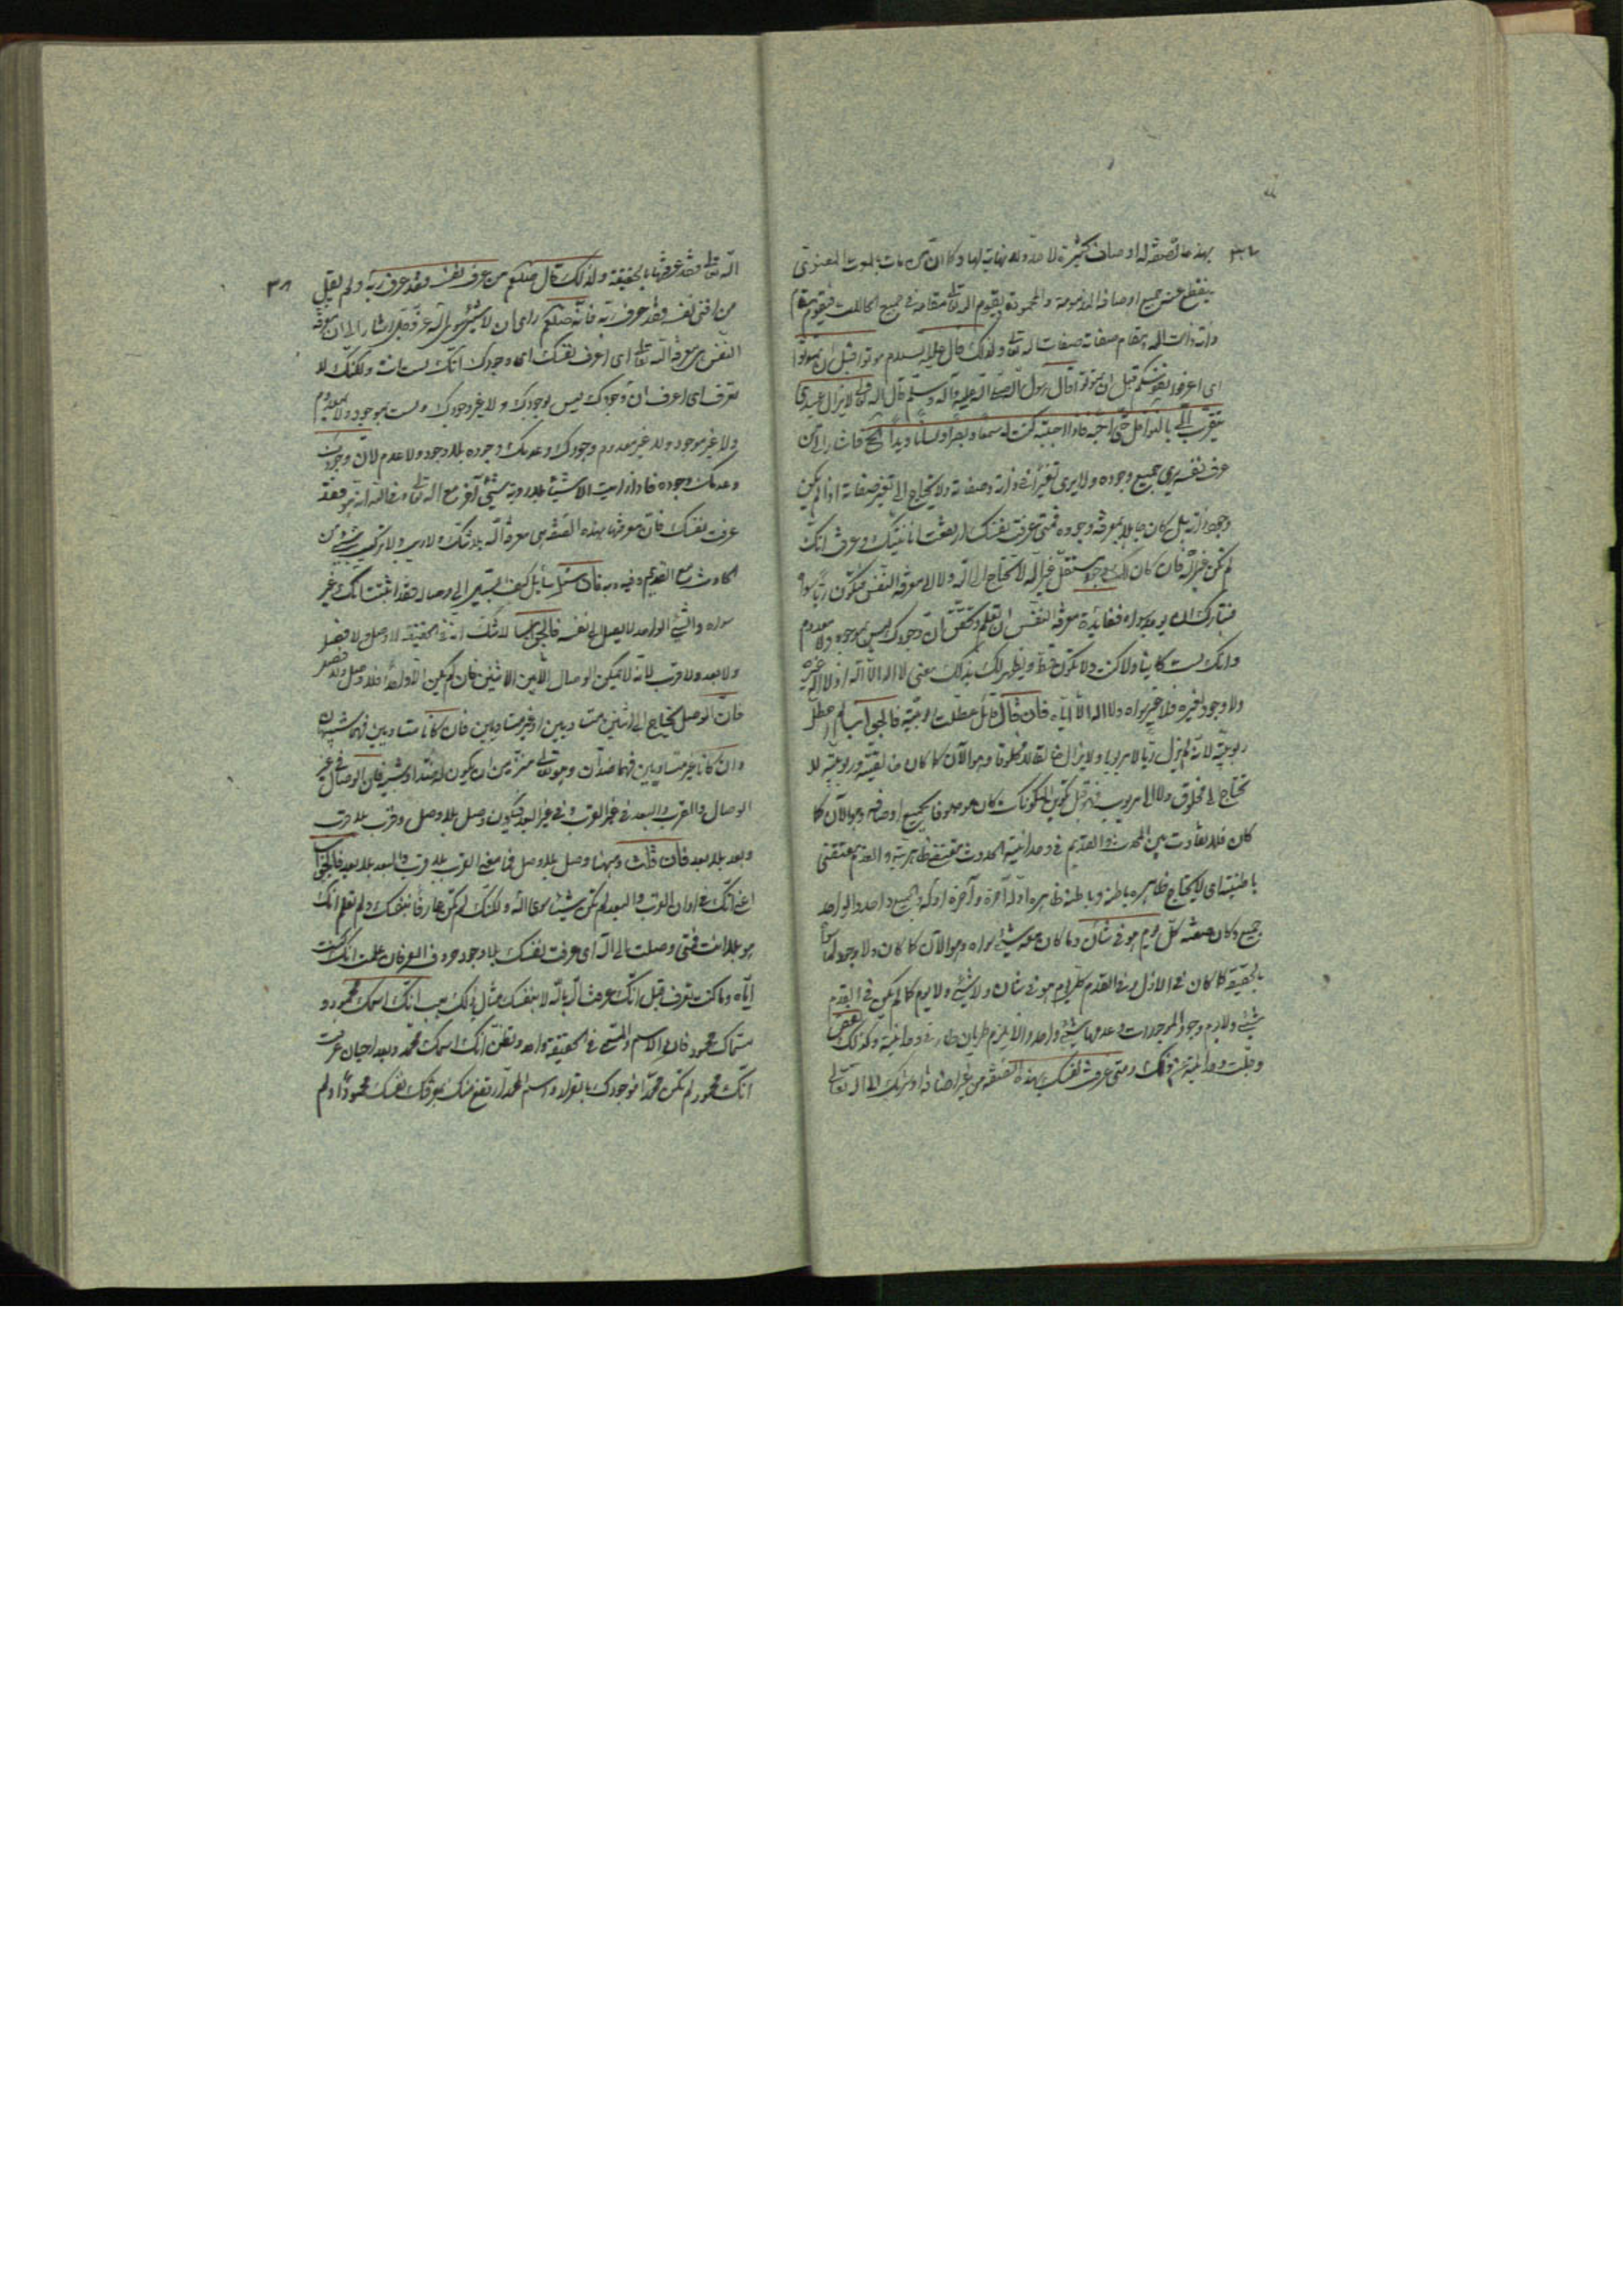 بهذه الصفة له اوصاف كثيرة لا حد ولا نهاية لها وكما ان من مات بالموت المعنوي
ينقطع عنه جميع اوصافه المذمومة والمحمودة ويقوم الله تعالى مقامه في جميع الحالات فيقوم مقام
ذاته ذات الله ومقام صفاته صفات الله تعالى ولذلك قال عليه السلام موتوا قبل ان تموتوا
اى اعرفوا نفوسكم قبل ان تموتوا وقال رسول الله صلى الله عليه وآله وسلم قال الله تعالى لا يزال عبدي
يتقرب الى بالنوافل حتى احبه فاذا احببته كنت له سمعا وبصرا ولسانا ويدا الخ فاشار الى ان من
عرف نفسه يرى جميع وجوده ولا يرى تغيرا في ذاته وصفاته ولا يحتاج الى تغير صفاته اذا لم يكن
وجود ذاته بل كان جاهلا بمعرفة وجوده فمتى عرفت نفسك ارتفعت انانيتك وعرفت انك
لم تكن غير الله فان كان لك وجود مستقل غير الله لا تحتاج الى الله ولا الى معرفة النفس فتكون ربا سواه
فتبارك الله ان يوجد سواه ففائدة معرفة النفس ان تعلم وتحقق ان وجودك ليس بموجود ولا معدوم
وانك لست كائنا ولا كنت ولا تكون قط ويظهر لك بذلك معنى لا اله الا الله اذ لا اله غيره
ولا وجود لغيره فلا غير سواه ولا اله الا اياه فان قال قائل عطلت ربوبيته فالجواب لم اعطل
ربوبيته لانه لم يزل ربا ولا مربوب ولا يزال خالقا ولا مخلوق وهو الآن كما كان خالقيته وربوبيته لا
تحتاج الى مخلوق ولا الى مربوب فهو قبل تكوين المكونات كان موصوفا بجميع اوصافه وهو الآن كما
كان فلا تفاوت بين المحدث والقديم في وحدانيته الحدوث مقتضى ظاهريته والقدم مقتضى
باطنيته اى لا يحتاج ظاهره باطنه وباطنه ظاهره اوله آخره وآخره اوله والجميع واحد والواحد
جميع وكان صفته كل يوم هو في شأن وما كان معه شيء سواه وهو الآن كما كان ولا وجود لما سواه
بالحقيقة كما كان في الازل وفي القدم كل يوم هو في شأن ولا شيء ولا يوم كما لم يكن في القدم
شيء ولا يوم وجود الموجودات وعدمها شيء واحد والا يلزم طريان طار في وحدانيته وكذلك نقص
وجلت وحدانيته عن ذلك ومتى عرفت نفسك بهذه الصفة من غير اضافة او شريك الى الله تعالى
٣٨
الله تعالى فقد عرفتها بالحقيقة ولذلك قال صلعم من عرف نفسه فقد عرف ربه ولم يقل
من افنى نفسه فقد عرف ربه فانه صلعم راى ان لا شيء سوى الله عز وجل اشار الى ان معرفة
النفس هي معرفة الله تعالى اى اعرف نفسك اى وجودك انك لست انت ولكنك لا
تعرف اى اعرف ان وجودك ليس بوجودك ولا غير وجودك ولست بموجود ولا بمعدوم
ولا غير موجود ولا غير معدوم وجودك وعدمك وجوده بلا وجود ولا عدم لان وجودك
وعدمك وجوده فاذا رايت الاشياء بلا رؤية شيء آخر مع الله تعالى انه هو فقد
عرفت نفسك فان معرفتها بهذه الصفة هي معرفة الله بلا شك ولا ريب ولا تركيب شيء من
الحادث مع القديم وفيه وبه فان سأل سائل كيف السبيل الى وصاله فقد اثبتت انك غير
سواه والشيء الواحد لا يصل الى نفسه فالجواب لا شك انه في الحقيقة لا وصل ولا فصل
ولا بعد ولا قرب لانه لا يمكن الوصال الا بين الاثنين فان لم يكن الا واحد فلا وصل ولا فصل
فان الوصل يحتاج الى اثنين متساويين او غير متساويين فان كانا متساويين فهما شبيهان
وان كانا غير متساويين فهما ضدان وهو تعالى منزه من ان يكون له ضد او شبيه فان الوصال في غير
الوصال والقرب والبعد في غير القرب وفي غير البعد فيكون وصل بلا وصل وقرب بلا قرب
وبعد بلا بعد فان قلت وفهمنا وصل بلا وصل فما معنى القرب بلا قرب والبعد بلا بعد فالجواب
اعني انك في اوان القرب والبعد لم تكن شيئا سوى الله ولكنك لم تكن عارفا بنفسك ولم تعلم انك
هو بلا انت فمتى وصلت الى الله اى عرفت نفسك بلا وجود حروف العرفان علمت انك كنت
اياه وما كنت تعرف قبل انك عرفت الله بالله لا بنفسك مثال ذلك هب انك اسمك محمود و
مسماك محمود فان الاسم والمسمى في الحقيقة واحد وتظن انك اسمك محمد وبعد احيان عرفت
انك محمود لم تكن محمدا فوجودك باق له واسم المحمد ارتفع عنك بمعرفتك نفسك محمودا ولم